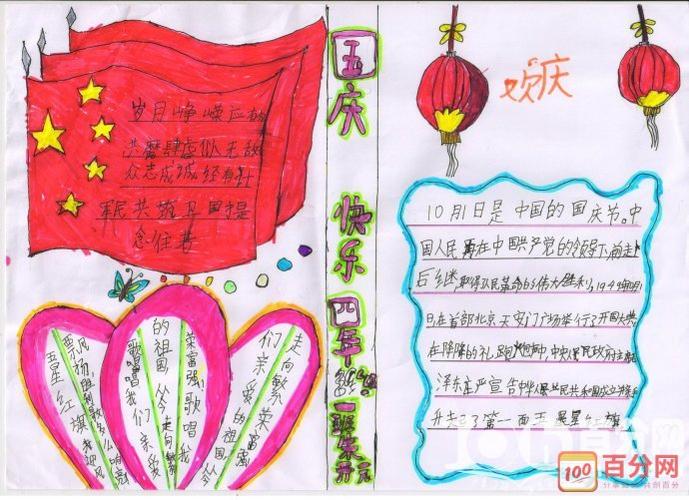 岁月峥嵘应
共磨肆虐似无敌
众志成城经
军民共筑卫国堤
念住昔
国庆
快乐
四年
一班
欢庆
10月1日是中国的国庆节。中
国人民在中国共产党的领导下,前赴
后继,取得人民革命的伟大胜利,1949年
日在首都北京天安门广场举行了开国大典
在隆隆的礼炮中,中央人民政府主席
泽东庄严宣告中华人民共和国成立
升起了第一面五星红旗
五星红旗我迎风
飘扬胜利歌多么响亮
歌唱我们亲爱
的祖国从今走向繁
荣富强歌唱我
们亲爱的祖国从今
走向繁荣富强
100
百分网